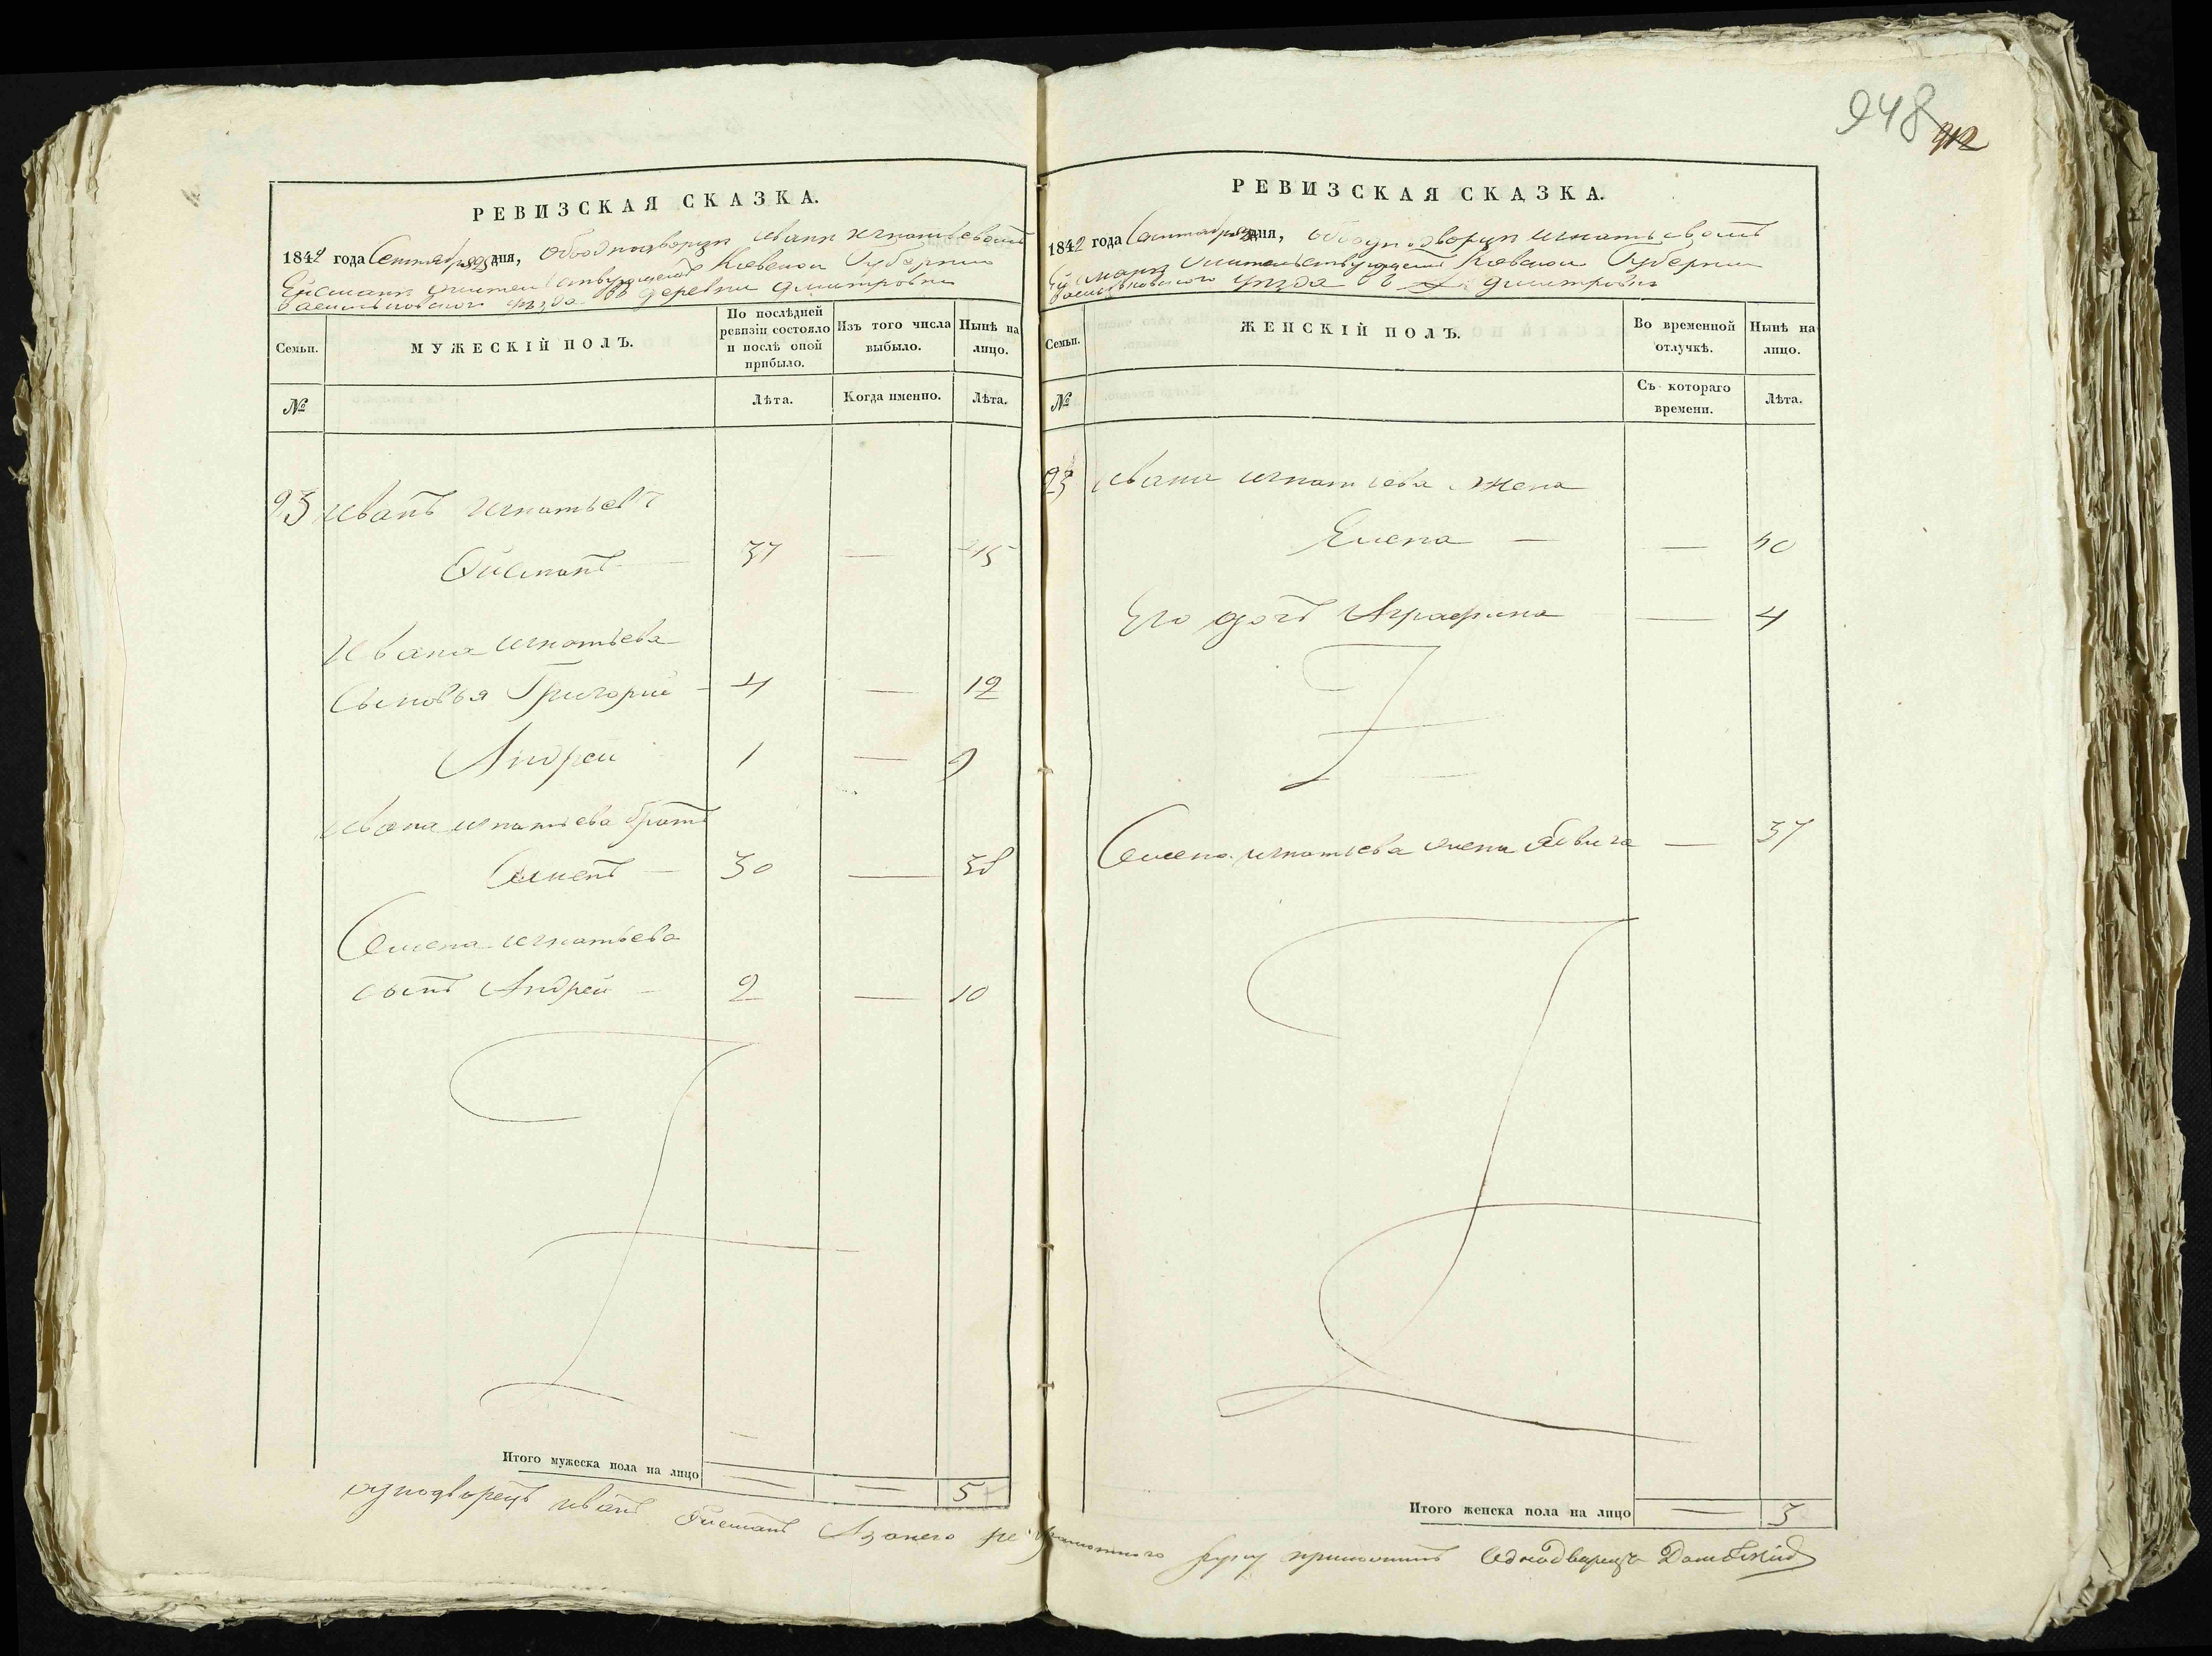 948
912
РЕВИЗСКАЯ СКАЗКА.
1842 года Сентября 25 дня, объ однодворцѣ Иванѣ Игнатьевомъ
Ейсманѣ жительствующемъ Кіевской Губерніи
Васильковскаго уѣзда въ деревни Дмитровки
Семьи.
МУЖЕСКІЙ ПОЛЪ.
По послѣдней ревизіи состояло и послѣ оной прибыло.
Изъ того числа выбыло.
Нынѣ на лицо.
№
Лѣта.
Когда именно.
Лѣта.
23 Иванъ Игнатьевъ
Ейсманъ — 37 — 45
Ивана Игнатьева
Сыновья Григорій — 4 — 12
Андрей 1 — 9
Ивана Игнатьева братъ
Семенъ — 30 — 38
Семена Игнатьева
сынъ Андрей — 2 — 10
Итого мужеска пола на лицо — — 5
РЕВИЗСКАЯ СКАЗКА.
1842 года Сентября 25 дня, объ однодворцѣ Игнатьевомъ
Ейсманѣ жительствующемъ Кіевской Губерніи
Васильковскаго уѣзда въ д. Дмитровки
Семьи.
ЖЕНСКІЙ ПОЛЪ.
Во временной отлучкѣ.
Нынѣ на лицо.
№
Съ котораго времени.
Лѣта.
23 Ивана Игнатьева жена
Елена — — 40
Его дочь Аграфина — 4
Семена Игнатьева жена — 37
Итого женска пола на лицо — 3
однодворецъ Иванъ Ейсманъ А за него неграмотного руку приложилъ Однодворецъ Домбскій